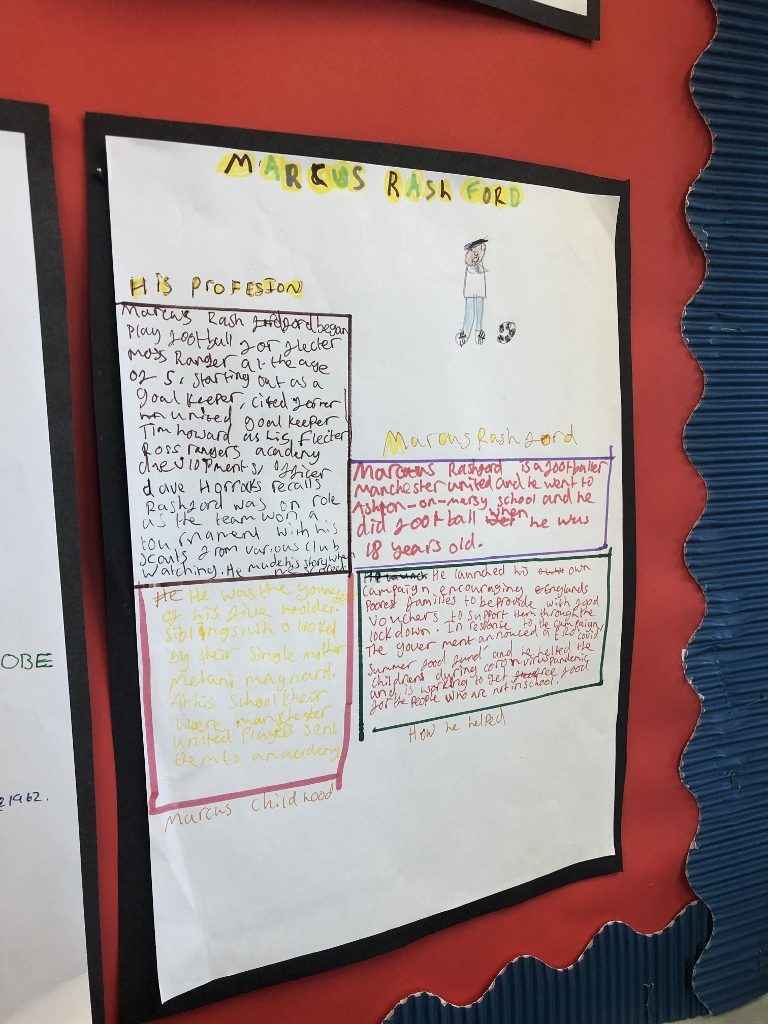 MARCUS RASHFORD
HIS PROFESION
Marcus Rash ford began
play football for flecter
moss Ranger at the age
of 5, starting out as a
goal keeper, cited forrer
united goal keeper
Tim howard as his flecter
Ross rangers academy
officer
dave Horrocks recalls
Rashford was on role
as the team won a
tournament with his
scouts from various club
watching. He made his story when
Marcus Rashford
Marcuus Rashford is a footballer
Manchester united and he went to
Ashton-on-mersy school and he
did football when he was
18 years old.
He He was the younges
of his five older
siblings who looked
by their single mother
Melani magnard.
At his school their
were manchester
united players sent
them to an academy
Marcus childhood
He launch He launched his own
campaign encouraging Englands
poorest families to be provide with food
vouchers to support them through the
lockdown. In response to the campaign
The government announced a £120 covid
summer food fund and he helped the
childrens during corona virus pandemic
and is working to get free food
for the people who are not in school.
How he helped
OBE
1962.